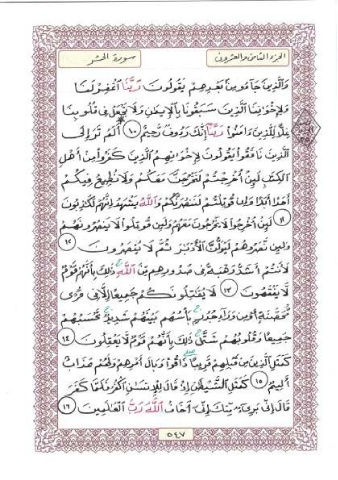 الجزء الثامن والعشرون سورة الحشر
وَالَّذِينَ جَاءُو مِنْ بَعْدِهِمْ يَقُولُونَ رَبَّنَا اغْفِرْ لَنَا
وَلِإِخْوَانِنَا الَّذِينَ سَبَقُونَا بِالْإِيمَانِ وَلَا تَجْعَلْ فِي قُلُوبِنَا
غِلًّا لِلَّذِينَ ءَامَنُوا رَبَّنَا إِنَّكَ رَءُوفٌ رَحِيمٌ ١٠ أَلَمْ تَرَ إِلَى
الَّذِينَ نَافَقُوا يَقُولُونَ لِإِخْوَانِهِمُ الَّذِينَ كَفَرُوا مِنْ أَهْلِ
الْكِتَٰبِ لَئِنْ أُخْرِجْتُمْ لَنَخْرُجَنَّ مَعَكُمْ وَلَا نُطِيعُ فِيكُمْ
أَحَدًا أَبَدًا وَإِنْ قُوتِلْتُمْ لَنَنْصُرَنَّكُمْ وَاللَّهُ يَشْهَدُ إِنَّهُمْ لَكَٰذِبُونَ
١١ لَئِنْ أُخْرِجُوا لَا يَخْرُجُونَ مَعَهُمْ وَلَئِنْ قُوتِلُوا لَا يَنْصُرُونَهُمْ
وَلَئِنْ نَصَرُوهُمْ لَيُوَلُّنَّ الْأَدْبَٰرَ ثُمَّ لَا يُنْصَرُونَ ١٢
لَأَنْتُمْ أَشَدُّ رَهْبَةً فِي صُدُورِهِمْ مِنَ اللَّهِ ذَٰلِكَ بِأَنَّهُمْ قَوْمٌ
لَا يَفْقَهُونَ ١٣ لَا يُقَٰتِلُونَكُمْ جَمِيعًا إِلَّا فِي قُرًى
مُحَصَّنَةٍ أَوْ مِنْ وَرَاءِ جُدُرٍ بَأْسُهُمْ بَيْنَهُمْ شَدِيدٌ تَحْسَبُهُمْ
جَمِيعًا وَقُلُوبُهُمْ شَتَّىٰ ذَٰلِكَ بِأَنَّهُمْ قَوْمٌ لَا يَعْقِلُونَ ١٤
كَمَثَلِ الَّذِينَ مِنْ قَبْلِهِمْ قَرِيبًا ذَاقُوا وَبَالَ أَمْرِهِمْ وَلَهُمْ عَذَابٌ
أَلِيمٌ ١٥ كَمَثَلِ الشَّيْطَٰنِ إِذْ قَالَ لِلْإِنْسَٰنِ اكْفُرْ فَلَمَّا كَفَرَ
قَالَ إِنِّي بَرِيءٌ مِنْكَ إِنِّي أَخَافُ اللَّهَ رَبَّ الْعَٰلَمِينَ ١٦
٥٤٧